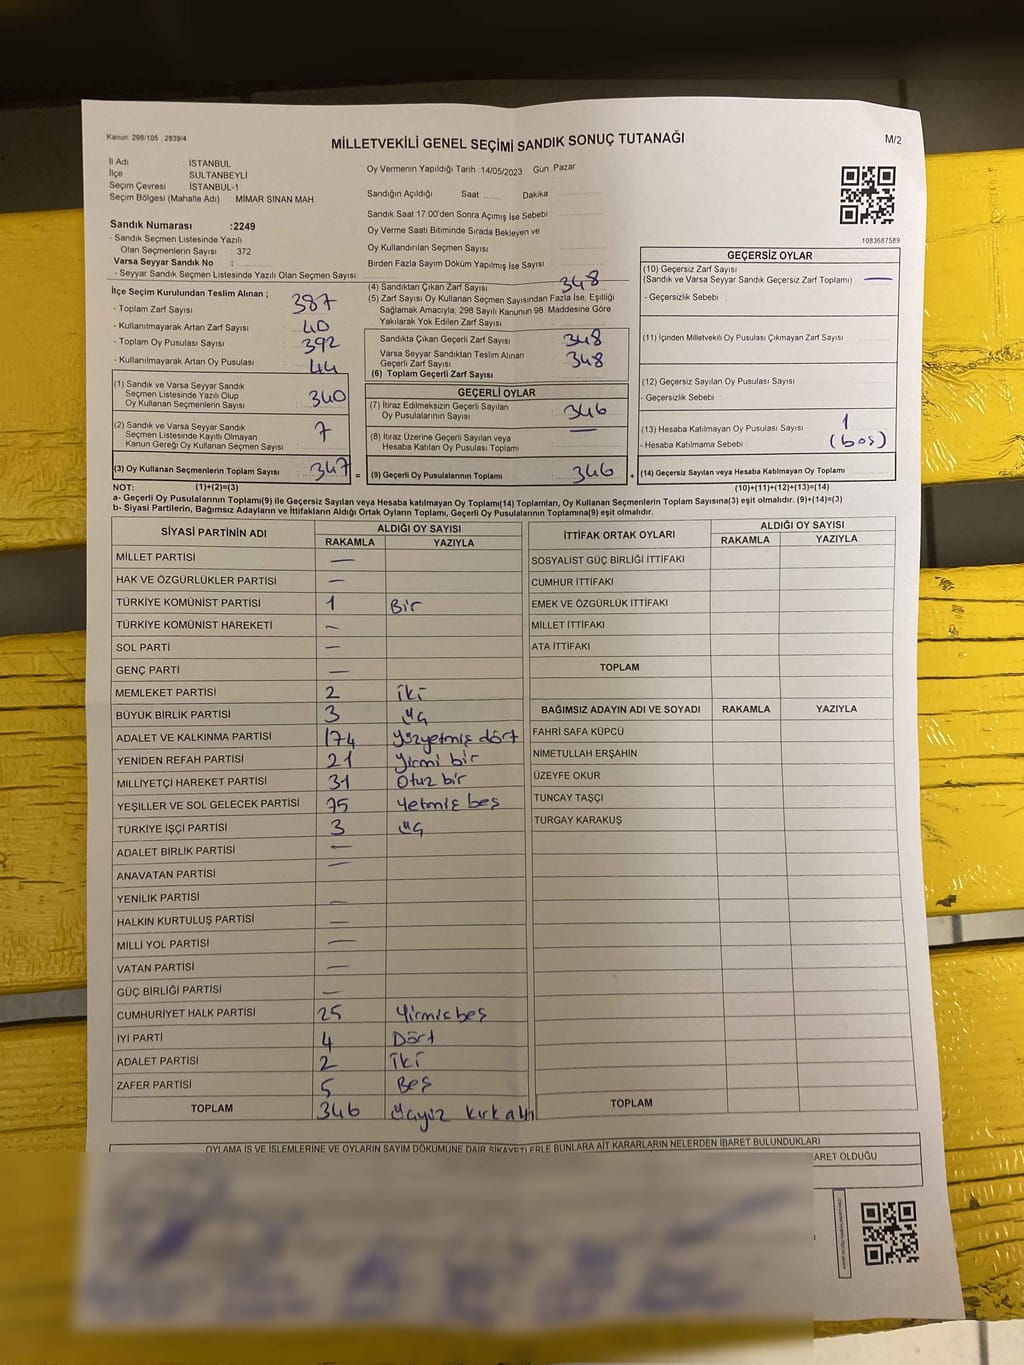 Kanun: 298/105 , 2839/4
MİLLETVEKİLİ GENEL SEÇİMİ SANDIK SONUÇ TUTANAĞI
M/2
İl Adı : İSTANBUL
İlçe : SULTANBEYLİ
Seçim Çevresi : İSTANBUL-1
Seçim Bölgesi (Mahalle Adı) : MİMAR SİNAN MAH.
Sandık Numarası :2249
- Sandık Seçmen Listesinde Yazılı
Olan Seçmenlerin Sayısı : 372
Varsa Seyyar Sandık No :
- Seyyar Sandık Seçmen Listesinde Yazılı Olan Seçmen Sayısı:
Oy Vermenin Yapıldığı Tarih :14/05/2023 Gün: Pazar
Sandığın Açıldığı Saat: Dakika
Sandık Saat 17:00'den Sonra Açımış İse Sebebi :
Oy Verme Saati Bitiminde Sırada Bekleyen ve
Oy Kullandırılan Seçmen Sayısı :
Birden Fazla Sayım Döküm Yapılmış İse Sayısı :
1083687589
İlçe Seçim Kurulundan Teslim Alınan ;
- Toplam Zarf Sayısı : 387
- Kullanılmayarak Artan Zarf Sayısı : 40
- Toplam Oy Pusulası Sayısı : 392
- Kullanılmayarak Artan Oy Pusulası : 44
(1) Sandık ve Varsa Seyyar Sandık
Seçmen Listesinde Yazılı Olup
Oy Kullanan Seçmenlerin Sayısı : 340
(2) Sandık ve Varsa Seyyar Sandık
Seçmen Listesinde Kayıtlı Olmayan
Kanun Gereği Oy Kullanan Seçmen Sayısı : 7
(3) Oy Kullanan Seçmenlerin Toplam Sayısı : 347 =
(4) Sandıktan Çıkan Zarf Sayısı : 348
(5) Zarf Sayısı Oy Kullanan Seçmen Sayısından Fazla İse, Eşitliği
Sağlamak Amacıyla; 298 Sayılı Kanunun 98. Maddesine Göre
Yakılarak Yok Edilen Zarf Sayısı :
Sandıkta Çıkan Geçerli Zarf Sayısı : 348
Varsa Seyyar Sandıktan Teslim Alınan
Geçerli Zarf Sayısı : 348
(6) Toplam Geçerli Zarf Sayısı :
GEÇERLİ OYLAR
(7) İtiraz Edilmeksizin Geçerli Sayılan
Oy Pusulalarının Sayısı : 346
(8) İtiraz Üzerine Geçerli Sayılan veya
Hesaba Katılan Oy Pusulaları Toplamı : —
(9) Geçerli Oy Pusulalarının Toplamı : 346 +
GEÇERSİZ OYLAR
(10) Geçersiz Zarf Sayısı
(Sandık ve Varsa Seyyar Sandık Geçersiz Zarf Toplamı) : —
- Geçersizlik Sebebi :
(11) İçinden Milletvekili Oy Pusulası Çıkmayan Zarf Sayısı :
(12) Geçersiz Sayılan Oy Pusulası Sayısı :
- Geçersizlik Sebebi :
(13) Hesaba Katılmayan Oy Pusulası Sayısı : 1
- Hesaba Katılmama Sebebi : (boş)
(14) Geçersiz Sayılan veya Hesaba Katılmayan Oy Toplamı :
NOT: (1)+(2)=(3) (10)+(11)+(12)+(13)=(14)
a- Geçerli Oy Pusulalarının Toplamı(9) ile Geçersiz Sayılan veya Hesaba katılmayan Oy Toplamı(14) Toplamları, Oy Kullanan Seçmenlerin Toplam Sayısına(3) eşit olmalıdır. (9)+(14)=(3)
b- Siyasi Partilerin, Bağımsız Adayların ve İttifakların Aldığı Ortak Oyların Toplamı, Geçerli Oy Pusulalarının Toplamına(9) eşit olmalıdır.
SİYASİ PARTİNİN ADI ALDIĞI OY SAYISI
RAKAMLA YAZIYLA
MİLLET PARTİSİ —
HAK VE ÖZGÜRLÜKLER PARTİSİ —
TÜRKİYE KOMÜNİST PARTİSİ 1 Bir
TÜRKİYE KOMÜNİST HAREKETİ —
SOL PARTİ —
GENÇ PARTİ —
MEMLEKET PARTİSİ 2 iki
BÜYÜK BİRLİK PARTİSİ 3 üç
ADALET VE KALKINMA PARTİSİ 174 yüzyetmiş dört
YENİDEN REFAH PARTİSİ 21 yirmi bir
MİLLİYETÇİ HAREKET PARTİSİ 31 Otuz bir
YEŞİLLER VE SOL GELECEK PARTİSİ 75 Yetmiş beş
TÜRKİYE İŞÇİ PARTİSİ 3 üç
ADALET BİRLİK PARTİSİ —
ANAVATAN PARTİSİ —
YENİLİK PARTİSİ —
HALKIN KURTULUŞ PARTİSİ —
MİLLİ YOL PARTİSİ —
VATAN PARTİSİ —
GÜÇ BİRLİĞİ PARTİSİ —
CUMHURİYET HALK PARTİSİ 25 Yirmibeş
İYİ PARTİ 4 Dört
ADALET PARTİSİ 2 iki
ZAFER PARTİSİ 5 Beş
TOPLAM 346 üçyüz kırkaltı
İTTİFAK ORTAK OYLARI ALDIĞI OY SAYISI
RAKAMLA YAZIYLA
SOSYALİST GÜÇ BİRLİĞİ İTTİFAKI
CUMHUR İTTİFAKI
EMEK VE ÖZGÜRLÜK İTTİFAKI
MİLLET İTTİFAKI
ATA İTTİFAKI
TOPLAM
BAĞIMSIZ ADAYIN ADI VE SOYADI RAKAMLA YAZIYLA
FAHRİ SAFA KÜPCÜ
NİMETULLAH ERŞAHİN
ÜZEYFE OKUR
TUNCAY TAŞÇI
TURGAY KARAKUŞ
TOPLAM
OYLAMA İŞ VE İŞLEMLERİNE VE OYLARIN SAYIM DÖKÜMÜNE DAİR ŞİKAYETLERLE BUNLARA AİT KARARLARIN NELERDEN İBARET BULUNDUKLARI
ARET OLDUĞU